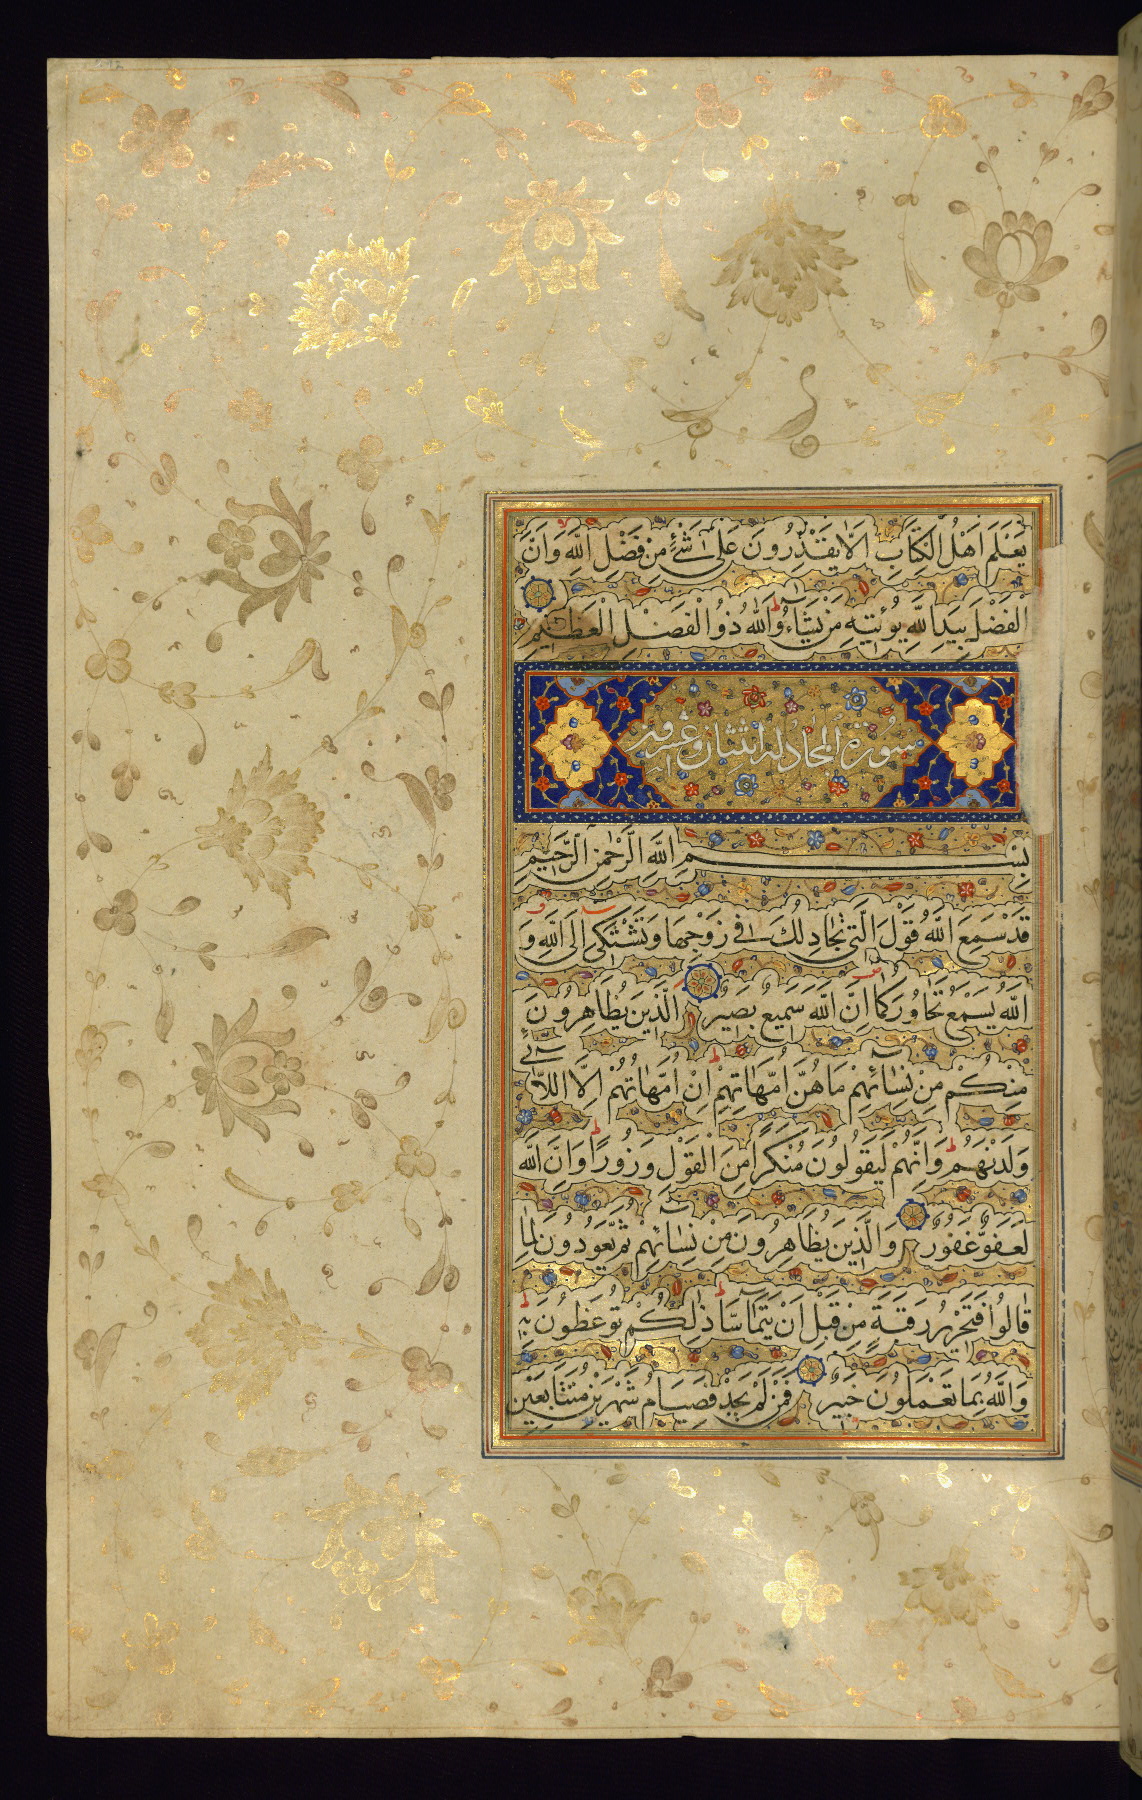 يَعْلَمَ اَهْلُ الْكِتَابِ اَلَّا يَقْدِرُونَ عَلٰى شَيْءٍ مِنْ فَضْلِ اللّٰهِ وَاَنَّ
الْفَضْلَ بِيَدِ اللّٰهِ يُؤْتِيهِ مَنْ يَشَاءُ وَاللّٰهُ ذُو الْفَضْلِ الْعَظِيمِ
سُورَةُ الْمُجَادِلَة اثنتان وعشرون
بِسْمِ اللّٰهِ الرَّحْمٰنِ الرَّحِيمِ
قَدْ سَمِعَ اللّٰهُ قَوْلَ الَّتِي تُجَادِلُكَ فِي زَوْجِهَا وَتَشْتَكِي اِلَى اللّٰهِ وَ
اللّٰهُ يَسْمَعُ تَحَاوُرَكُمَا اِنَّ اللّٰهَ سَمِيعٌ بَصِيرٌ الَّذِينَ يُظَاهِرُونَ
مِنْكُمْ مِنْ نِسَائِهِمْ مَا هُنَّ اُمَّهَاتِهِمْ اِنْ اُمَّهَاتُهُمْ اِلَّا اللَّائِي
وَلَدْنَهُمْ وَاِنَّهُمْ لَيَقُولُونَ مُنْكَرًا مِنَ الْقَوْلِ وَزُورًا وَاِنَّ اللّٰهَ
لَعَفُوٌّ غَفُورٌ وَالَّذِينَ يُظَاهِرُونَ مِنْ نِسَائِهِمْ ثُمَّ يَعُودُونَ لِمَا
قَالُوا فَتَحْرِيرُ رَقَبَةٍ مِنْ قَبْلِ اَنْ يَتَمَاسَّا ذٰلِكُمْ تُوعَظُونَ بِهِ
وَاللّٰهُ بِمَا تَعْمَلُونَ خَبِيرٌ فَمَنْ لَمْ يَجِدْ فَصِيَامُ شَهْرَيْنِ مُتَتَابِعَيْنِ